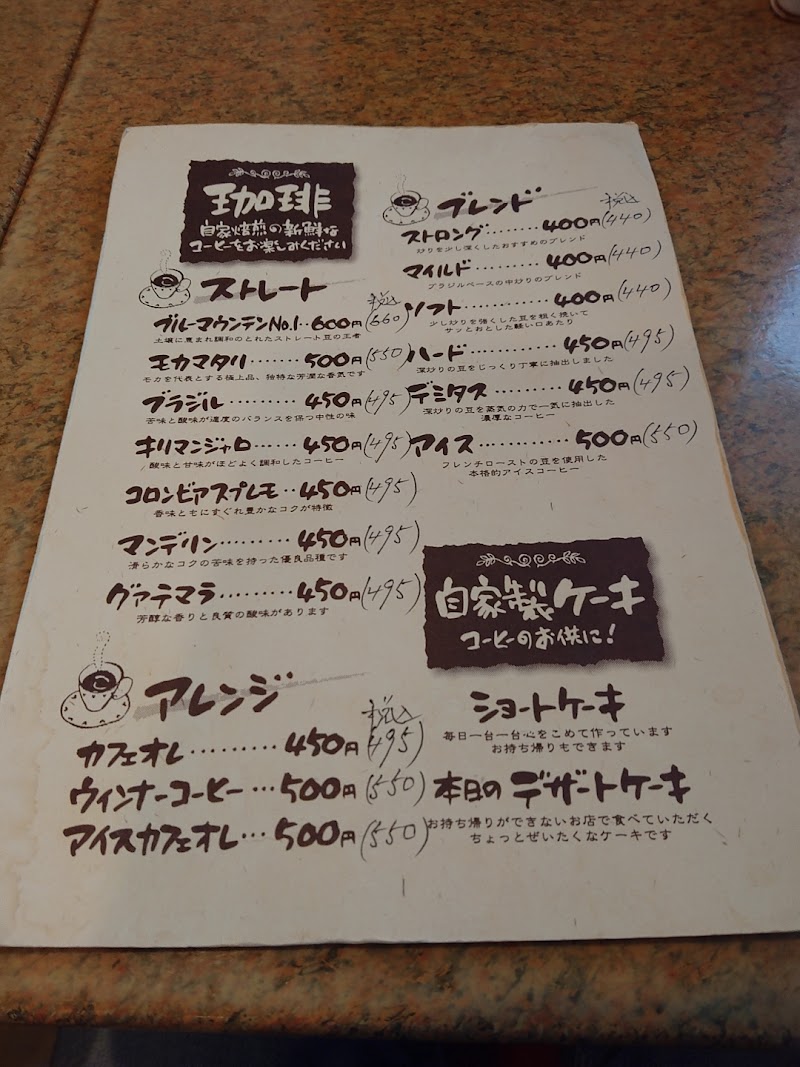 珈琲
自家焙煎の新鮮な
コーヒーをお楽しみください
ストレート
税込
ブルーマウンテンNo.1‥600円(660)
土壌に恵まれ調和のとれたストレート豆の王者
モカマタリ‥‥‥‥500円(550)
モカを代表とする極上品、独特な芳潤な香気です
ブラジル‥‥‥‥‥450円(495)
苦味と酸味が適度のバランスを保つ中性の味
キリマンジャロ‥‥‥450円(495)
酸味と甘味がほどよく調和したコーヒー
コロンビアスプレモ‥450円(495)
香味ともにすぐれ豊かなコクが特徴
マンデリン‥‥‥‥‥450円(495)
清らかなコクの苦味を持った優良品種です
グァテマラ‥‥‥‥‥450円(495)
芳醇な香りと良質の酸味があります
アレンジ
税込
カフェオレ‥‥‥‥‥450円(495)
ウィンナーコーヒー…500円(550)
アイスカフェオレ…500円(550)
ブレンド
税込
ストロング‥‥‥‥400円(440)
炒りを少し深くしたおすすめのブレンド
マイルド‥‥‥‥‥400円(440)
ブラジルベースの中炒りのブレンド
ソフト‥‥‥‥‥‥400円(440)
少し炒りを強くした豆を粗く挽いて
サッとおとした軽い口あたり
ハード‥‥‥‥‥‥450円(495)
深炒りの豆をじっくり丁寧に抽出しました
デミタス‥‥‥‥‥450円(495)
深炒りの豆を蒸気の力で一気に抽出した
濃厚なコーヒー
アイス‥‥‥‥‥‥500円(550)
フレンチローストの豆を使用した
本格的アイスコーヒー
自家製ケーキ
コーヒーのお供に!
ショートケーキ
毎日一台一台心をこめて作っています
お持ち帰りもできます
本日のデザートケーキ
お持ち帰りができないお店で食べていただく
ちょっとぜいたくなケーキです